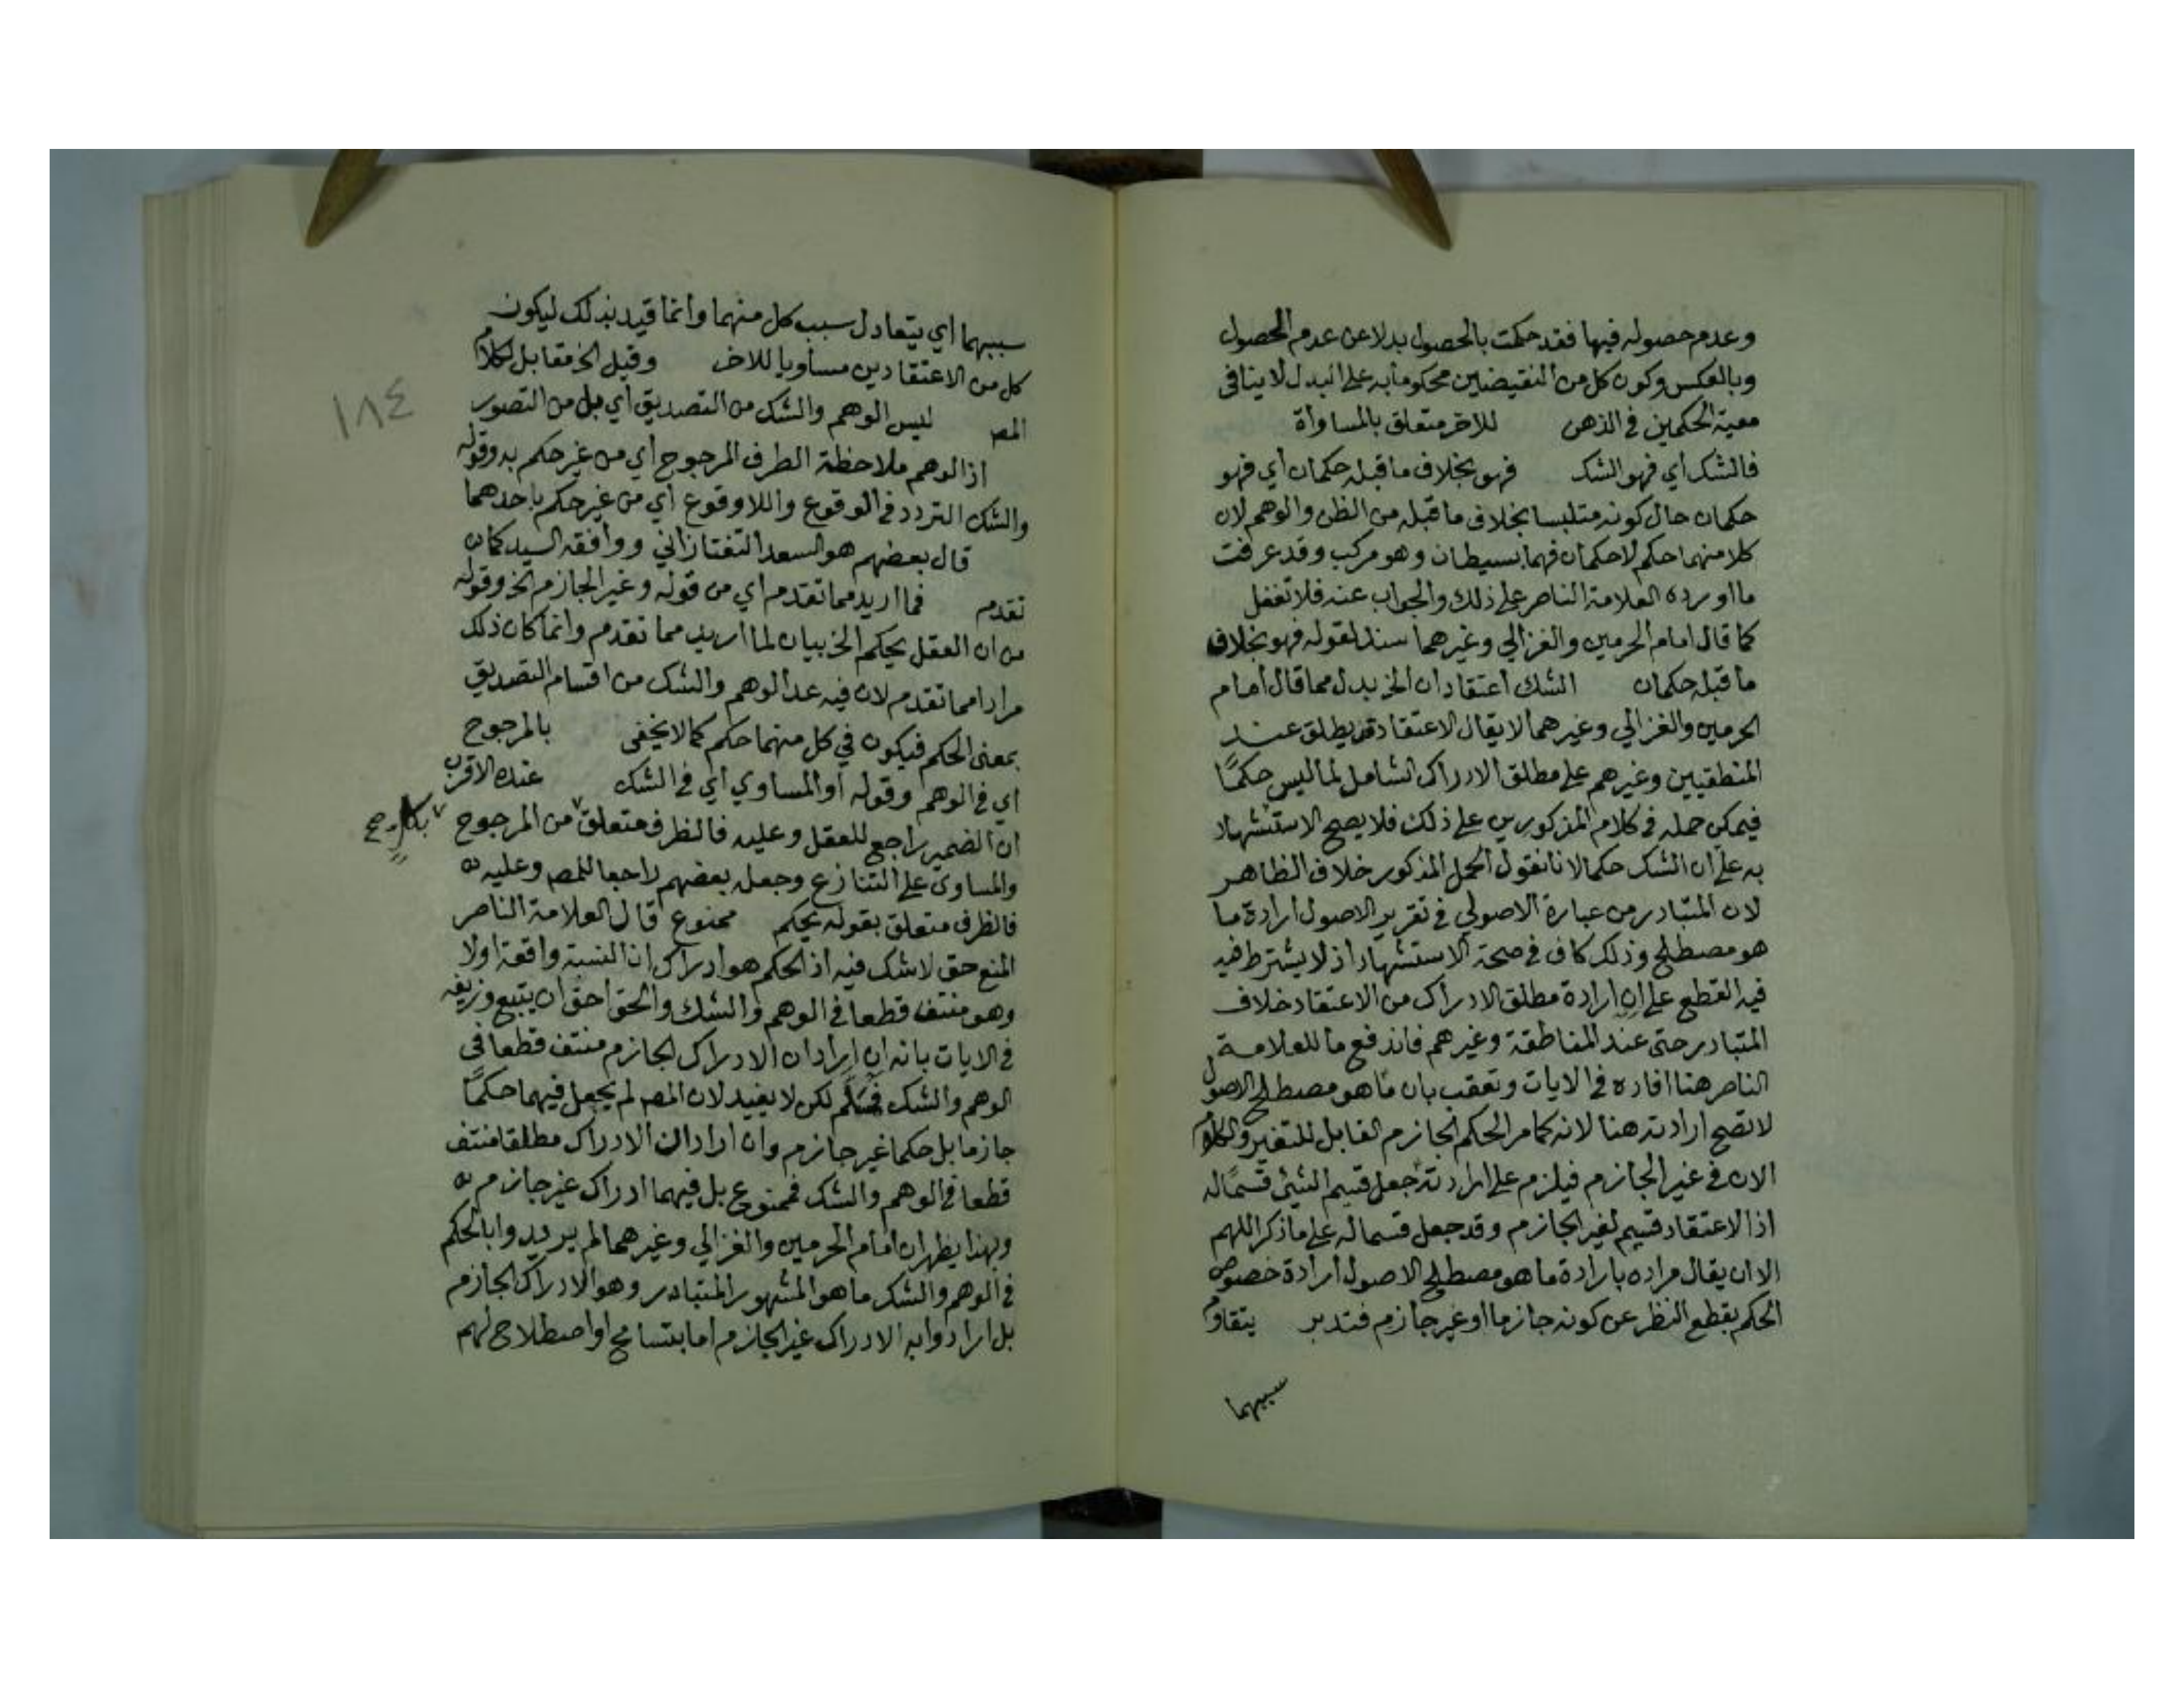 وعدم حصوله فيها فقد حكمت بالحصول بدلا عن عدم الحصول
وبالعكس وكون كل من النقيضين محكوما به على البدل لا ينافى
معية الحكمين في الذهن للاخر متعلق بالمساواة
فالشك أي فهو الشك فهو بخلاف ما قبله حكمان أي فهو
حكمان حال كونه متلبسا بخلاف ما قبله من الظن والوهم لان
كلا منهما حكم لا حكمان فهما بسيطان وهو مركب وقد عرفت
ما اورده العلامة الناصر على ذلك والجواب عنه فلا تغفل
كما قال امام الحرمين والغزالي وغيرهما سند لقوله فهو بخلاف
ما قبله حكمان الشك اعتقادان الخ بدل مما قال امام
الحرمين والغزالي وغيرهما لا يقال الاعتقاد قد يطلق عند
المنطقيين وغيرهم على مطلق الادراك الشامل لما ليس حكمًا
فيمكن حمله في كلام المذكورين على ذلك فلا يصح الاستشهاد
به على ان الشك حكما لانا نقول الحمل المذكور خلاف الظاهر
لان المتبادر من عبارة الاصولي في تقرير الاصول ارادة ما
هو مصطلح وذلك كاف في صحة الاستشهاد اذ لا يشترط فيه
فيه القطع على ان ارادة مطلق الادراك من الاعتقاد خلاف
المتبادر حتى عند المناطقة وغيرهم فاندفع ما للعلامة
الناصر هنا افاده في الايات وتعقب بان ما هو مصطلح الاصول
لا تصح ارادته هنا لانه كما مر الحكم الجازم القابل للتغير والكلام
الان في غير الجازم فيلزم على ارادته جعل قسيم الشئ قسمًا له
اذ الاعتقاد قسيم لغير الجازم وقد جعل قسما له على ما ذكر اللهم
الا ان يقال مراده بارادة ما هو مصطلح الاصول ارادة خصوص
الحكم بقطع النظر عن كونه جازما او غير جازم فتدبر يتقاوم
سببهما
١٨٤
سببهما اي يتعادل سبب كل منهما وانما قيد بذلك ليكون
كل من الاعتقادين مساويا للاخر وقيل الخ مقابل لكلام
المص ليس الوهم والشك من التصديق أي بل من التصور
اذ الوهم ملاحظة الطرف المرجوح أي من غير حكم به وقوله
والشك التردد في الوقوع واللاوقوع أي من غير حكم باحدهما
قال بعضهم هو السعد التفتازاني ووافقه السيد كما ان
تقدم فما اريد مما تقدم أي من قوله وغير الجازم الخ وقوله
من ان العقل يحكم الخ بيان لما اريد مما تقدم وانما كان ذلك
مرادا مما تقدم لان فيه عد الوهم والشك من اقسام التصديق
بمعنى الحكم فيكون في كل منهما حكم كما لا يخفى بالمرجوح
اي في الوهم وقوله أو المساوي أي في الشك عنده الاقرب
ان الضمير راجع للعقل وعليه فالظرف متعلق من المرجوح
بكل صح
والمساوى على التنازع وجعله بعضهم راجعا للمص وعليه
فالظرف متعلق بقوله يحكم ممنوع قال العلامة الناصر
المنع حق لا شك فيه اذ الحكم هو ادراك ان النسبة واقعة اولا
وهو منتف قطعا في الوهم والشك والحق احق ان يتبع وزيفه
في الايات بانه ان اراد ان الادراك الجازم منتف قطعا في
الوهم والشك فمسَلَّم لكن لا يفيد لان المص لم يجعل فيهما حكمًا
جازما بل حكما غير جازم وان اراد ان الادراك مطلقا منتف
قطعا في الوهم والشك فممنوع بل فيهما ادراك غير جازم
وبهذا يظهر ان امام الحرمين والغزالي وغيرهما لم يريدوا بالحكم
في الوهم والشك ما هو المشهور المتبادر وهو الادراك الجازم
بل ارادوا به الادراك غير الجازم اما بتسامح او اصطلاح لهم